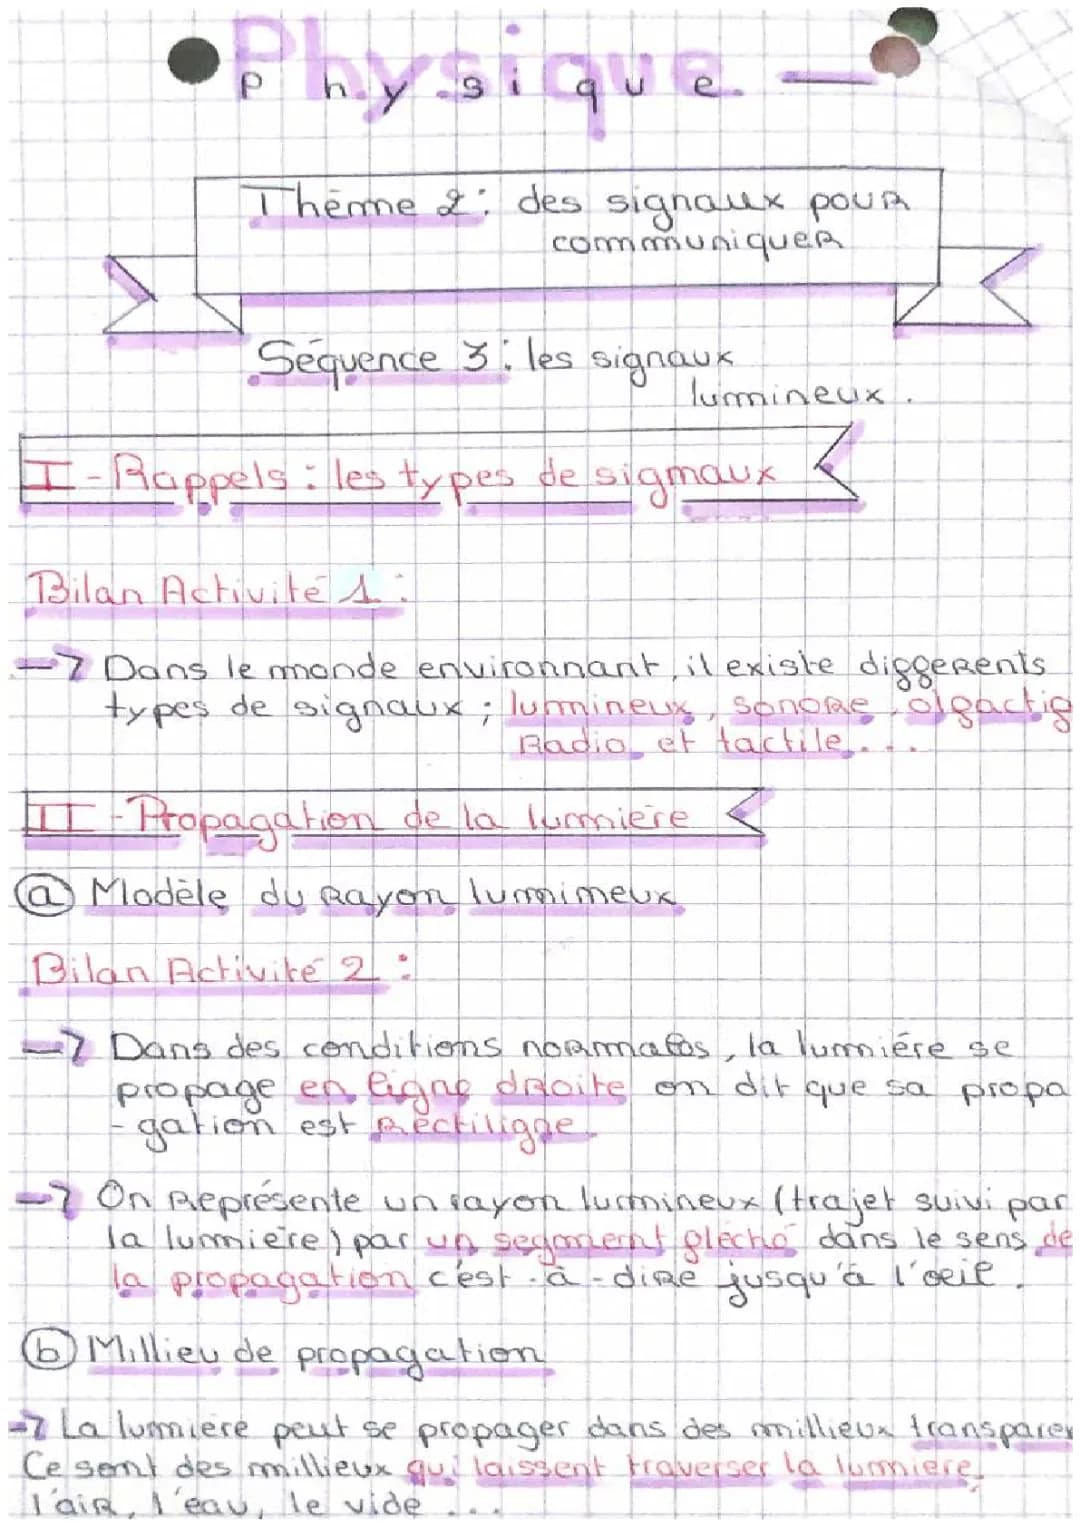 Physique
Physique.
Thème 2: des signaux pour
communiquer
Séquence 3: les signaux
lumineux.
I-Rappels: les types de signaux
Bilan Activité 1:
→ Dans le monde environnant, il existe différents
types de signaux; lumineux, sonore, olfactif
Radio et tactile...
II-Propagation de la lumière
(a) Modèle du Rayon lumineux
Bilan Activité 2:
→ Dans des conditions normales, la lumière se
propage en ligne droite on dit que sa propa
-gation est Rectiligne.
→ On Représente un rayon lumineux (trajet suivi par
la lumière) par un segment fléché dans le sens de
la propagation c'est-à-dire jusqu'à l'oeil.
(b) Millieu de propagation
→ La lumière peut se propager dans des millieux transparen
Ce sont des millieux qui laissent traverser la lumière.
l'air, l'eau, le vide...